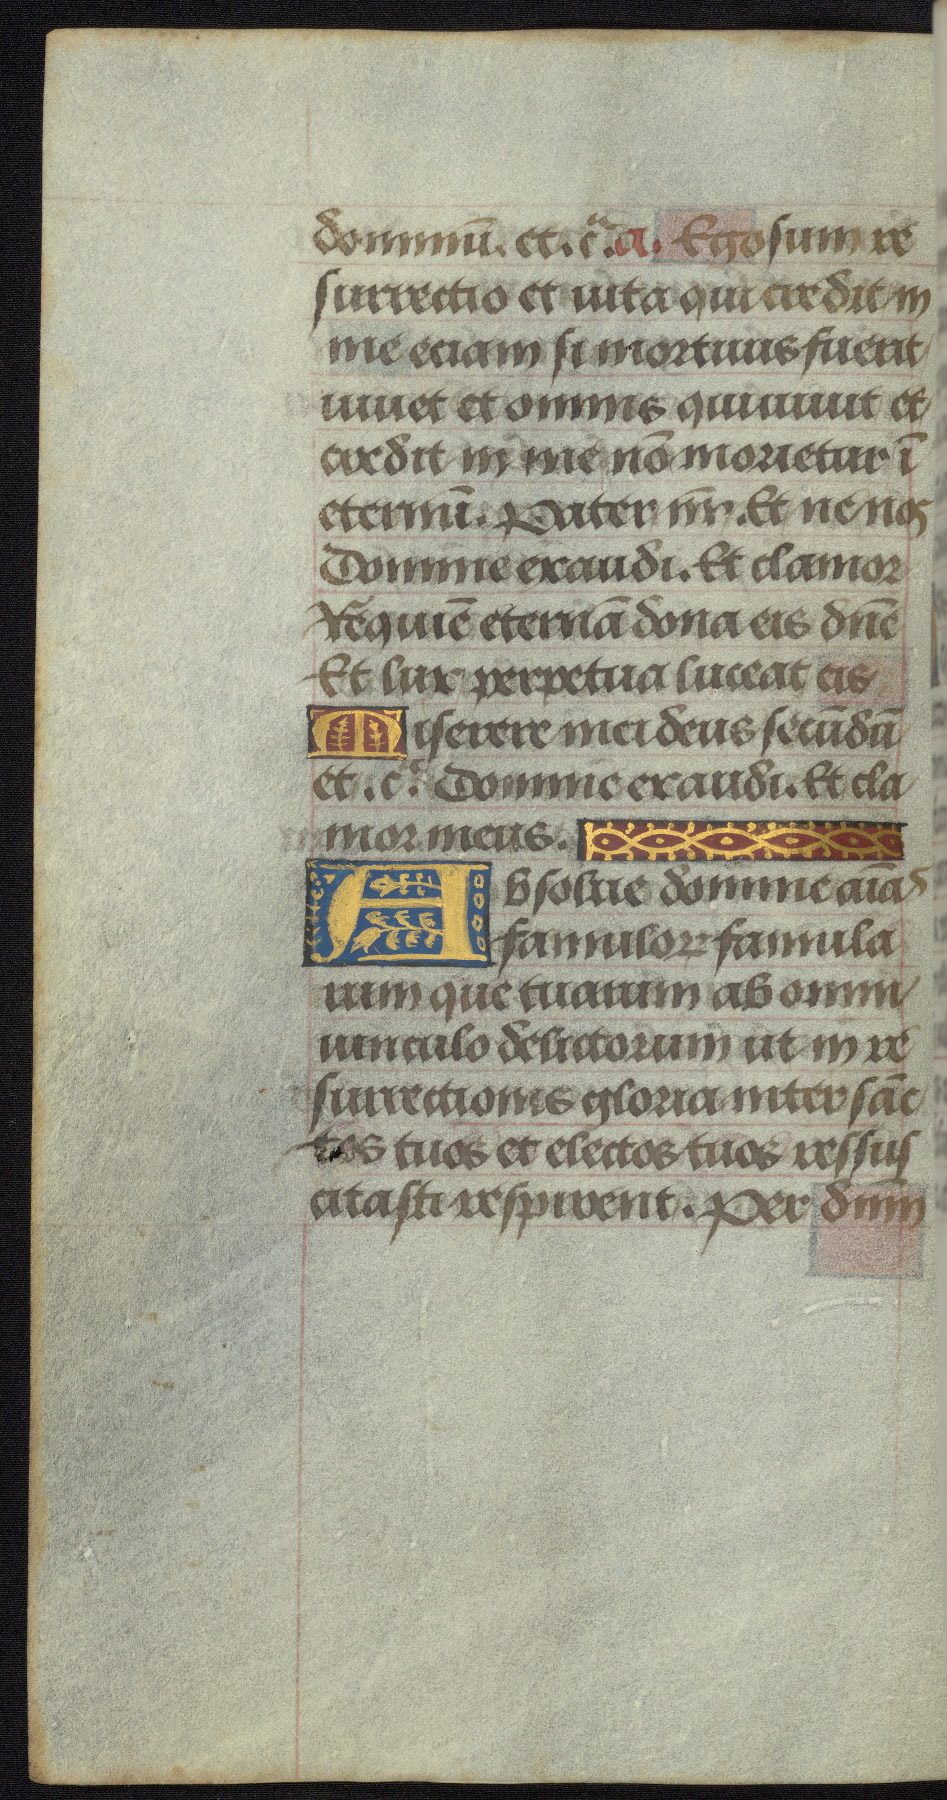 dominū. et. cᵃ. a. Ego sum re
surrectio et uita qui credit in
me eciam si mortuus fuerit
uiuet et omnis qui uiuit et
credit in me nō morietur ī
eternū. Pater nr̄. Et ne nos
Domine exaudi. Et clamor
Requiē eternā dona eis dn̄e
Et lux perpetua luceat eis
Miserere mei deus secūdū
et. cᵃ. Domine exaudi. Et cla
mor meus.
Absolue domine aīas
famulorꝝ famula
rum que tuarum ab omni
uinculo delictorum ut in re
surrectionis gloria inter sāc
tos tuos et electos tuos ressus
citasti respirent. Per dnm̄